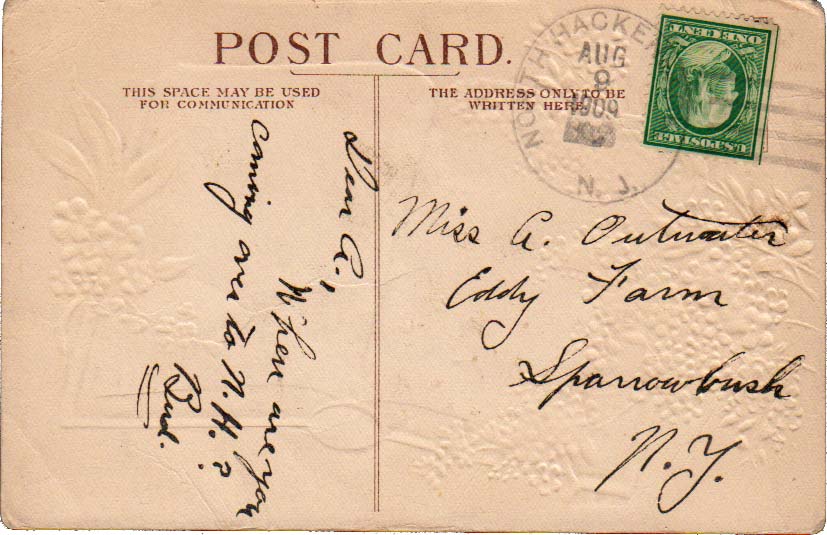 POST CARD.
THIS SPACE MAY BE USED
FOR COMMUNICATION
THE ADDRESS ONLY TO BE
WRITTEN HERE.
NORTH HACKEN
AUG
9
1909
N. J.
ONE CENT
U.S. POSTAGE
Dear A.,
When are you
coming over to N. H.?
Bud.
Miss A. Outwater
Eddy Farm
Sparrowbush
N. Y.